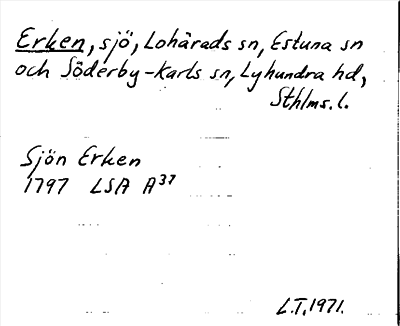 Erken, sjö, Lohärads sn, Estuna sn
och Söderby-Karls sn, Lyhundra hd,
Sthlms. l.
Sjön Erken
1797 LSA A37
L.T. 1971.